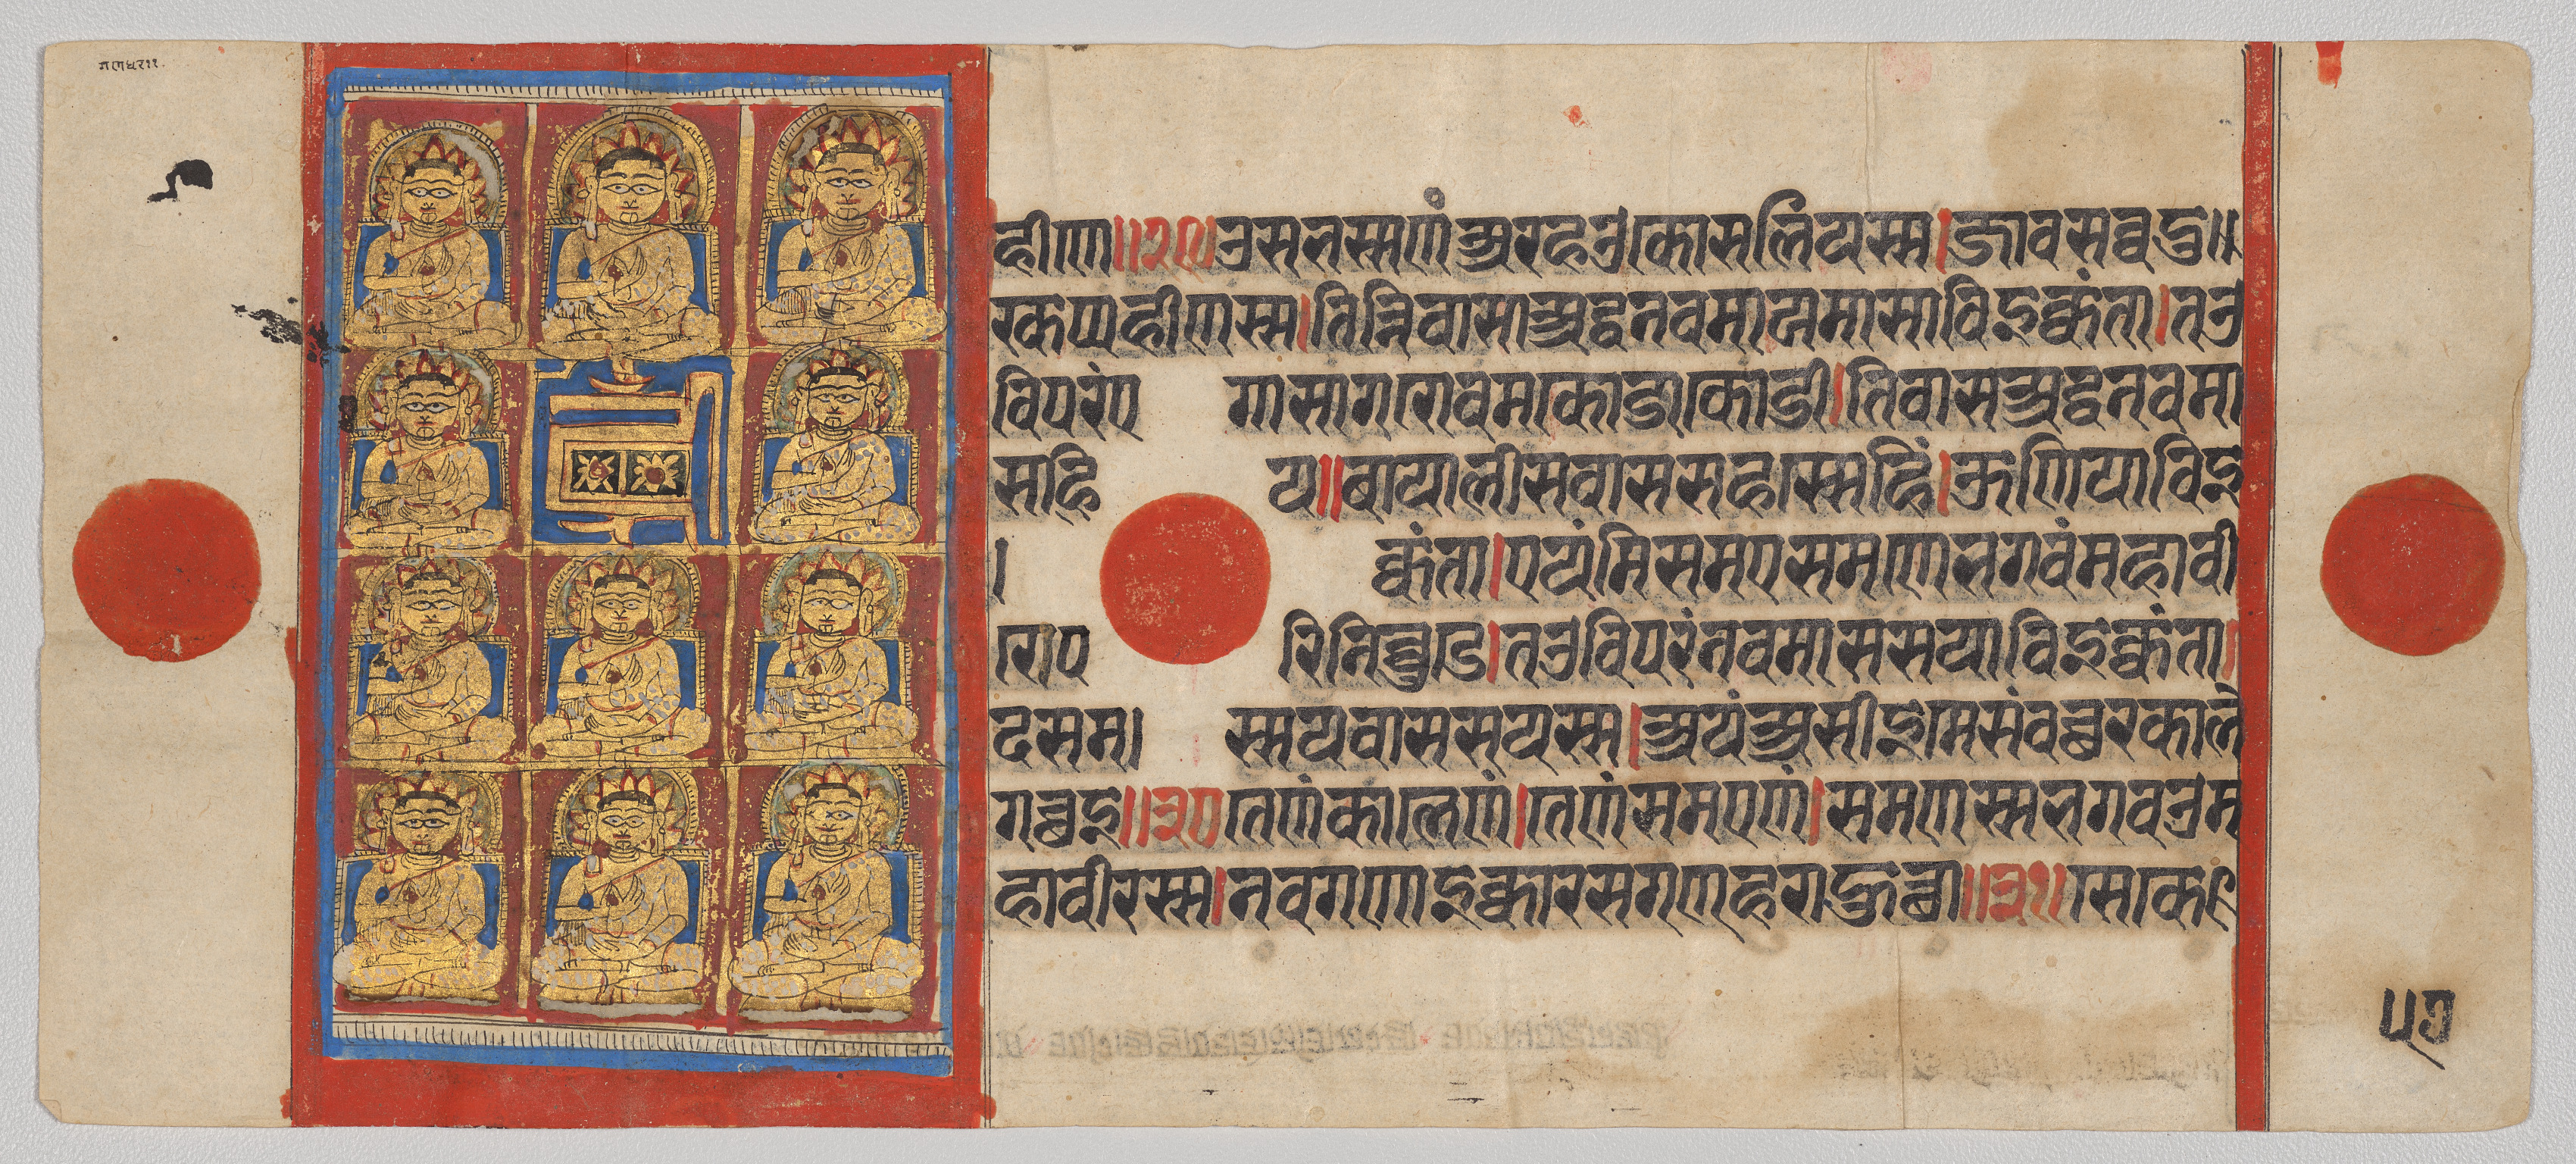 गणधर११
हीणे॥२९॥उसभस्सणंअरहओकोसलियस्स।जावसव्वदु॥
रकप्पहीणस्स।तिन्निवासाअद्धनवमायमासाविइक्कंता।तओ
विपरंए गासागरोवमकोडाकोडी।तिवासअद्धनवमा
सहि य॥बायालीसवाससहस्सेहिं।ऊणियाविइ
। क्कंता।एयंमिसमएसमणेभगवंमहावी
रेप रिनिव्वुडे।तओविपरंनवमाससयाविइक्कंता।
दसम। स्सयवाससयस्स।अयंअसीइमेसंवच्छरेकाले
गच्छइ॥३०॥तेणंकालेणं।तेणंसमएणं।समणस्सभगवओम
हावीरस्स।नवगणाइक्कारसगणहराहुच्छा॥३१॥सेके
५७